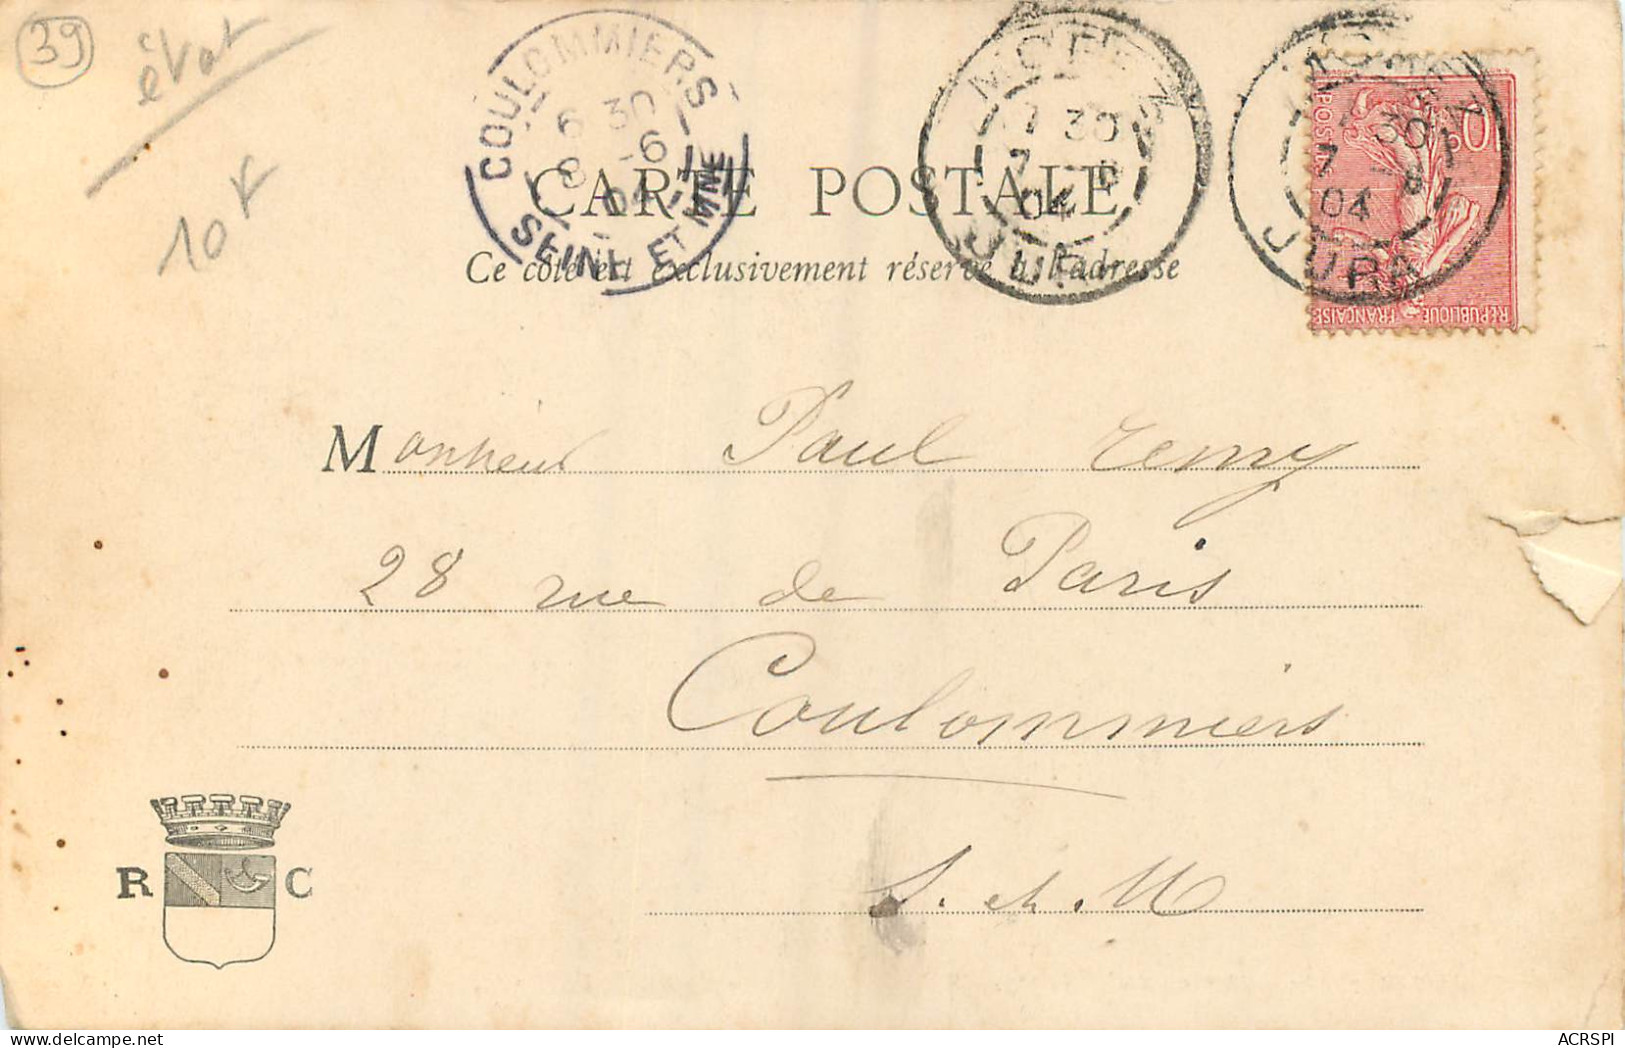 39
état
10F
COULOMMIERS
6 30
8 -6
04
SEINE ET MNE
MOREZ
7 30
7 -6
04
JURA
MOREZ
7 30
7 -6
04
JURA
POSTES
10c
RÉPUBLIQUE FRANÇAISE
CARTE POSTALE
Ce côté est exclusivement réservé à l'adresse
Monsieur Paul remy
28 rue de Paris
Coulommiers
S. et. M
R C
ACRSPI